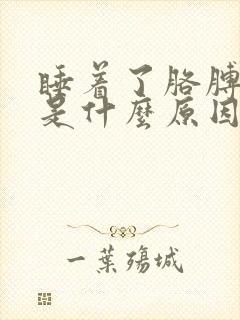 睡着了胳膊
是什麼原因
一葉殤城